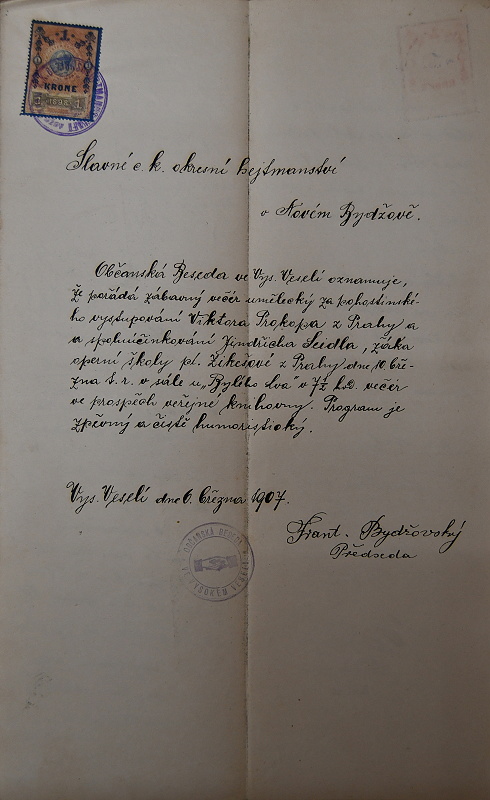 1
KRONE
1 1898 1
Slavné c. k. okresní hejtmanství
v Novém Bydžově.
Občanská Beseda ve Vys. Veselí oznamuje,
že pořádá zábavný večer umělecký za pohostinské-
ho vystupování Viktora Prokopa z Prahy a
a spoluúčinkování Jindřicha Seidla, žáka
operní školy pí. Žikešové z Prahy dne 10. břez-
na t. r. v sále u „Bylého lva" v 7½ hod. večer
ve prospěch veřejné knihovny. Program je
zpěvný a čistě humoristický.
Vys. Veselí dne 6. března 1907.
Frant. Bydžovský
Předseda
OBČANSKÁ BESEDA
VE VYSOKÉM VESELÍ